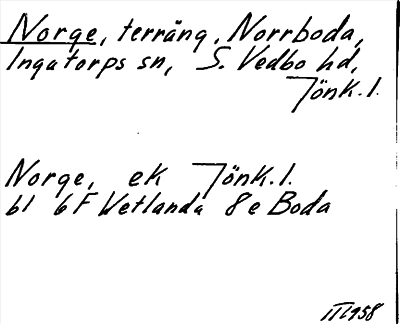 Norge, terräng, Norrboda,
Ingatorps sn, S. Vedbo hd,
Jönk. l.
Norge, ek Jönk. l.
bl 6F Vetlanda 8e Boda
III 1958